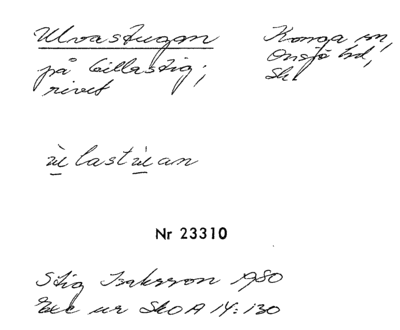 Ulvastugan
Konga sn,
på Gillastig;
Onsjö hd,
rivet
Sk
ùlastùan
Nr 23310
Stig Isaksson 1980
Exc ur SkOA 14:130